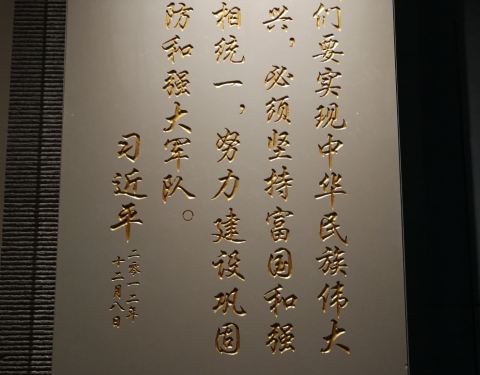 们要实现中华民族伟大
兴，必须坚持富国和强
相统一，努力建设巩固
防和强大军队。
习近平
二零一二年
十二月八日